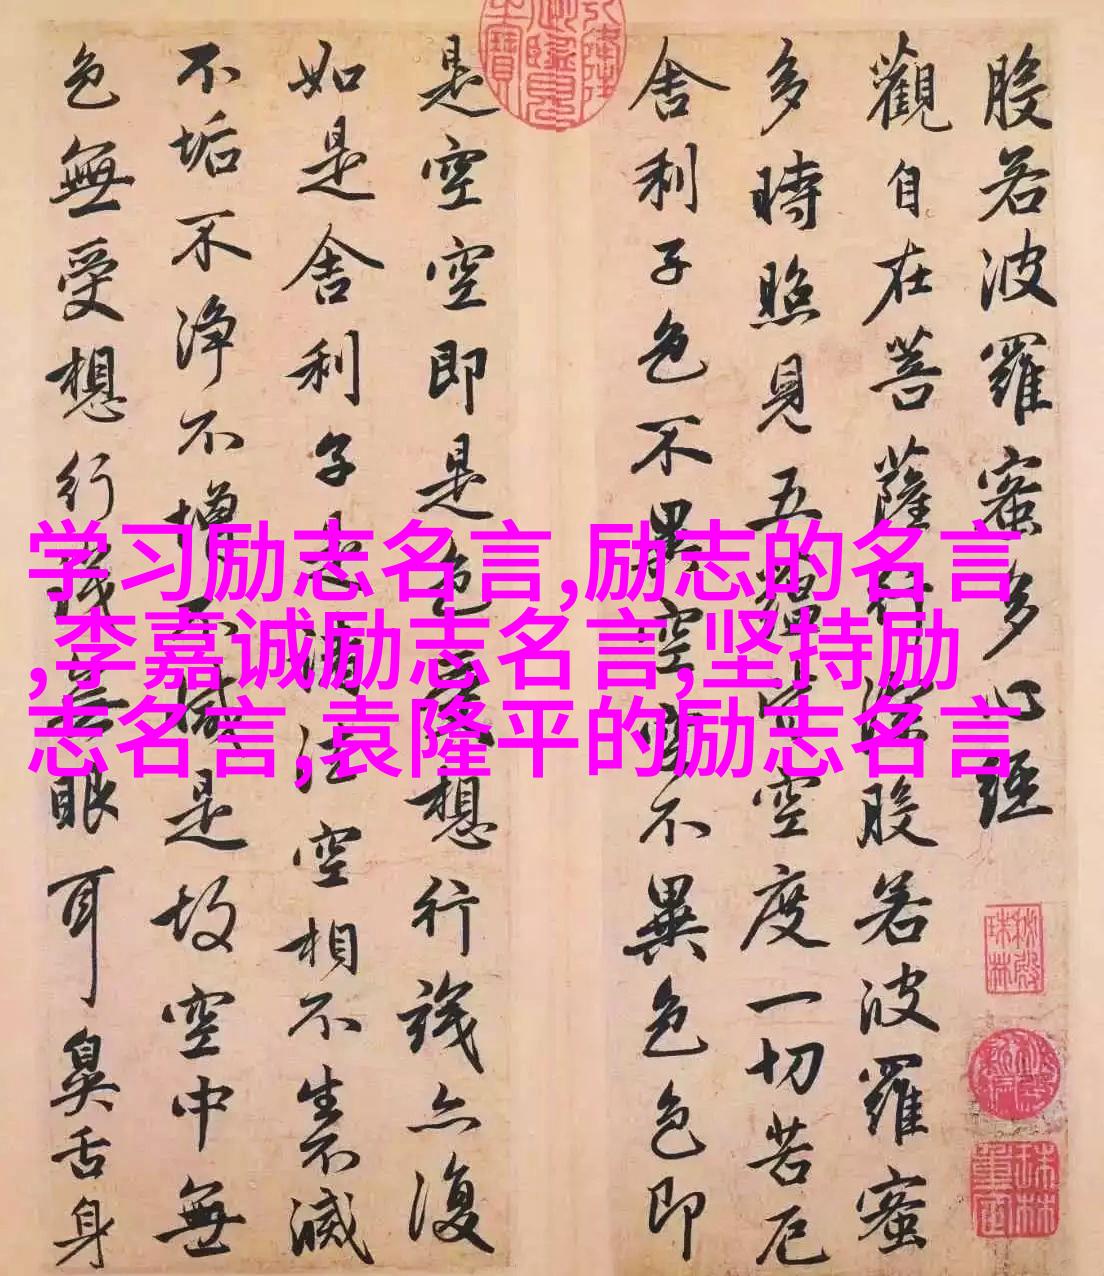 般若波羅蜜多心經
觀自在菩薩行深般若波羅蜜
多時照見五蘊皆空度一切苦厄
舍利子色不異空空不異色色即
是空空即是色受想行識亦復
如是舍利子是諸法空相不生不滅
不垢不淨不增不減是故空中無
色無受想行識無眼耳鼻舌身
学习励志名言,励志的名言
,李嘉诚励志名言,坚持励
志名言,袁隆平的励志名言